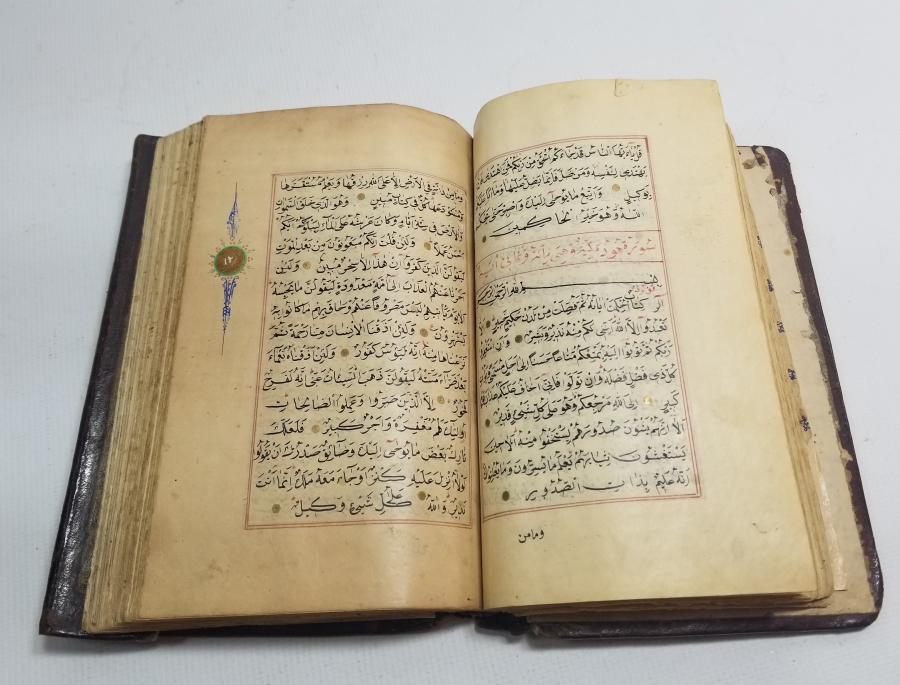 قُلْ يَاءَيُّهَا النَّاسُ قَدْ جَاءَكُمُ الْحَقُّ مِنْ رَبِّكُمْ فَمَنِ اهْتَدَى فَاِنَّمَا
يَهْتَدِي لِنَفْسِهِ وَمَنْ ضَلَّ فَاِنَّمَا يَضِلُّ عَلَيْهَا وَمَا اَنَا عَلَيْكُمْ
بِوَكِيلٍ وَاتَّبِعْ مَا يُوحَى اِلَيْكَ وَاصْبِرْ حَتَّى يَحْكُمَ
اللهُ وَهُوَ خَيْرُ الْحَاكِمِينَ
سورة هود مكية وهي مائة
بسم الله الرحمن الرحيم
الر كِتَابٌ اُحْكِمَتْ اٰيَاتُهُ ثُمَّ فُصِّلَتْ مِنْ لَدُنْ حَكِيمٍ خَبِيرٍ
تَعْبُدُوا اِلَّا اللهَ اِنَّنِي لَكُمْ مِنْهُ نَذِيرٌ وَبَشِيرٌ وَاَنِ اسْتَغْفِرُوا
رَبَّكُمْ ثُمَّ تُوبُوا اِلَيْهِ يُمَتِّعْكُمْ مَتَاعًا حَسَنًا اِلَى اَجَلٍ مُسَمًّى وَيُؤْتِ
كُلَّ ذِي فَضْلٍ فَضْلَهُ وَاِنْ تَوَلَّوْا فَاِنِّي اَخَافُ عَلَيْكُمْ عَذَابَ يَوْمٍ
كَبِيرٍ اِلَى اللهِ مَرْجِعُكُمْ وَهُوَ عَلَى كُلِّ شَيْءٍ قَدِيرٌ
اَلَا اِنَّهُمْ يَثْنُونَ صُدُورَهُمْ لِيَسْتَخْفُوا مِنْهُ اَلَا حِينَ
يَسْتَغْشُونَ ثِيَابَهُمْ يَعْلَمُ مَا يُسِرُّونَ وَمَا يُعْلِنُونَ
اِنَّهُ عَلِيمٌ بِذَاتِ الصُّدُورِ
ومامن
وَمَا مِنْ دَابَّةٍ فِي الْاَرْضِ اِلَّا عَلَى اللهِ رِزْقُهَا وَيَعْلَمُ مُسْتَقَرَّهَا
وَمُسْتَوْدَعَهَا كُلٌّ فِي كِتَابٍ مُبِينٍ وَهُوَ الَّذِي خَلَقَ السَّمَوَاتِ
وَالْاَرْضَ فِي سِتَّةِ اَيَّامٍ وَكَانَ عَرْشُهُ عَلَى الْمَاءِ لِيَبْلُوَكُمْ اَيُّكُمْ
اَحْسَنُ عَمَلًا وَلَئِنْ قُلْتَ اِنَّكُمْ مَبْعُوثُونَ مِنْ بَعْدِ الْمَوْتِ
لَيَقُولَنَّ الَّذِينَ كَفَرُوا اِنْ هَذَا اِلَّا سِحْرٌ مُبِينٌ وَلَئِنْ
اَخَّرْنَا عَنْهُمُ الْعَذَابَ اِلَى اُمَّةٍ مَعْدُودَةٍ لَيَقُولُنَّ مَا يَحْبِسُهُ
اَلَا يَوْمَ يَأْتِيهِمْ لَيْسَ مَصْرُوفًا عَنْهُمْ وَحَاقَ بِهِمْ مَا كَانُوا بِهِ
يَسْتَهْزِؤُنَ وَلَئِنْ اَذَقْنَا الْاِنْسَانَ مِنَّا رَحْمَةً ثُمَّ
نَزَعْنَاهَا مِنْهُ اِنَّهُ لَيَؤُسٌ كَفُورٌ وَلَئِنْ اَذَقْنَاهُ نَعْمَاءَ
بَعْدَ ضَرَّاءَ مَسَّتْهُ لَيَقُولَنَّ ذَهَبَ السَّيِّئَاتُ عَنِّي اِنَّهُ لَفَرِحٌ
فَخُورٌ اِلَّا الَّذِينَ صَبَرُوا وَعَمِلُوا الصَّالِحَاتِ
اُولَئِكَ لَهُمْ مَغْفِرَةٌ وَاَجْرٌ كَبِيرٌ فَلَعَلَّكَ
تَارِكٌ بَعْضَ مَا يُوحَى اِلَيْكَ وَضَائِقٌ بِهِ صَدْرُكَ اَنْ يَقُولُوا
لَوْلَا اُنْزِلَ عَلَيْهِ كَنْزٌ اَوْ جَاءَ مَعَهُ مَلَكٌ اِنَّمَا اَنْتَ
نَذِيرٌ وَاللهُ عَلَى كُلِّ شَيْءٍ وَكِيلٌ
١٢